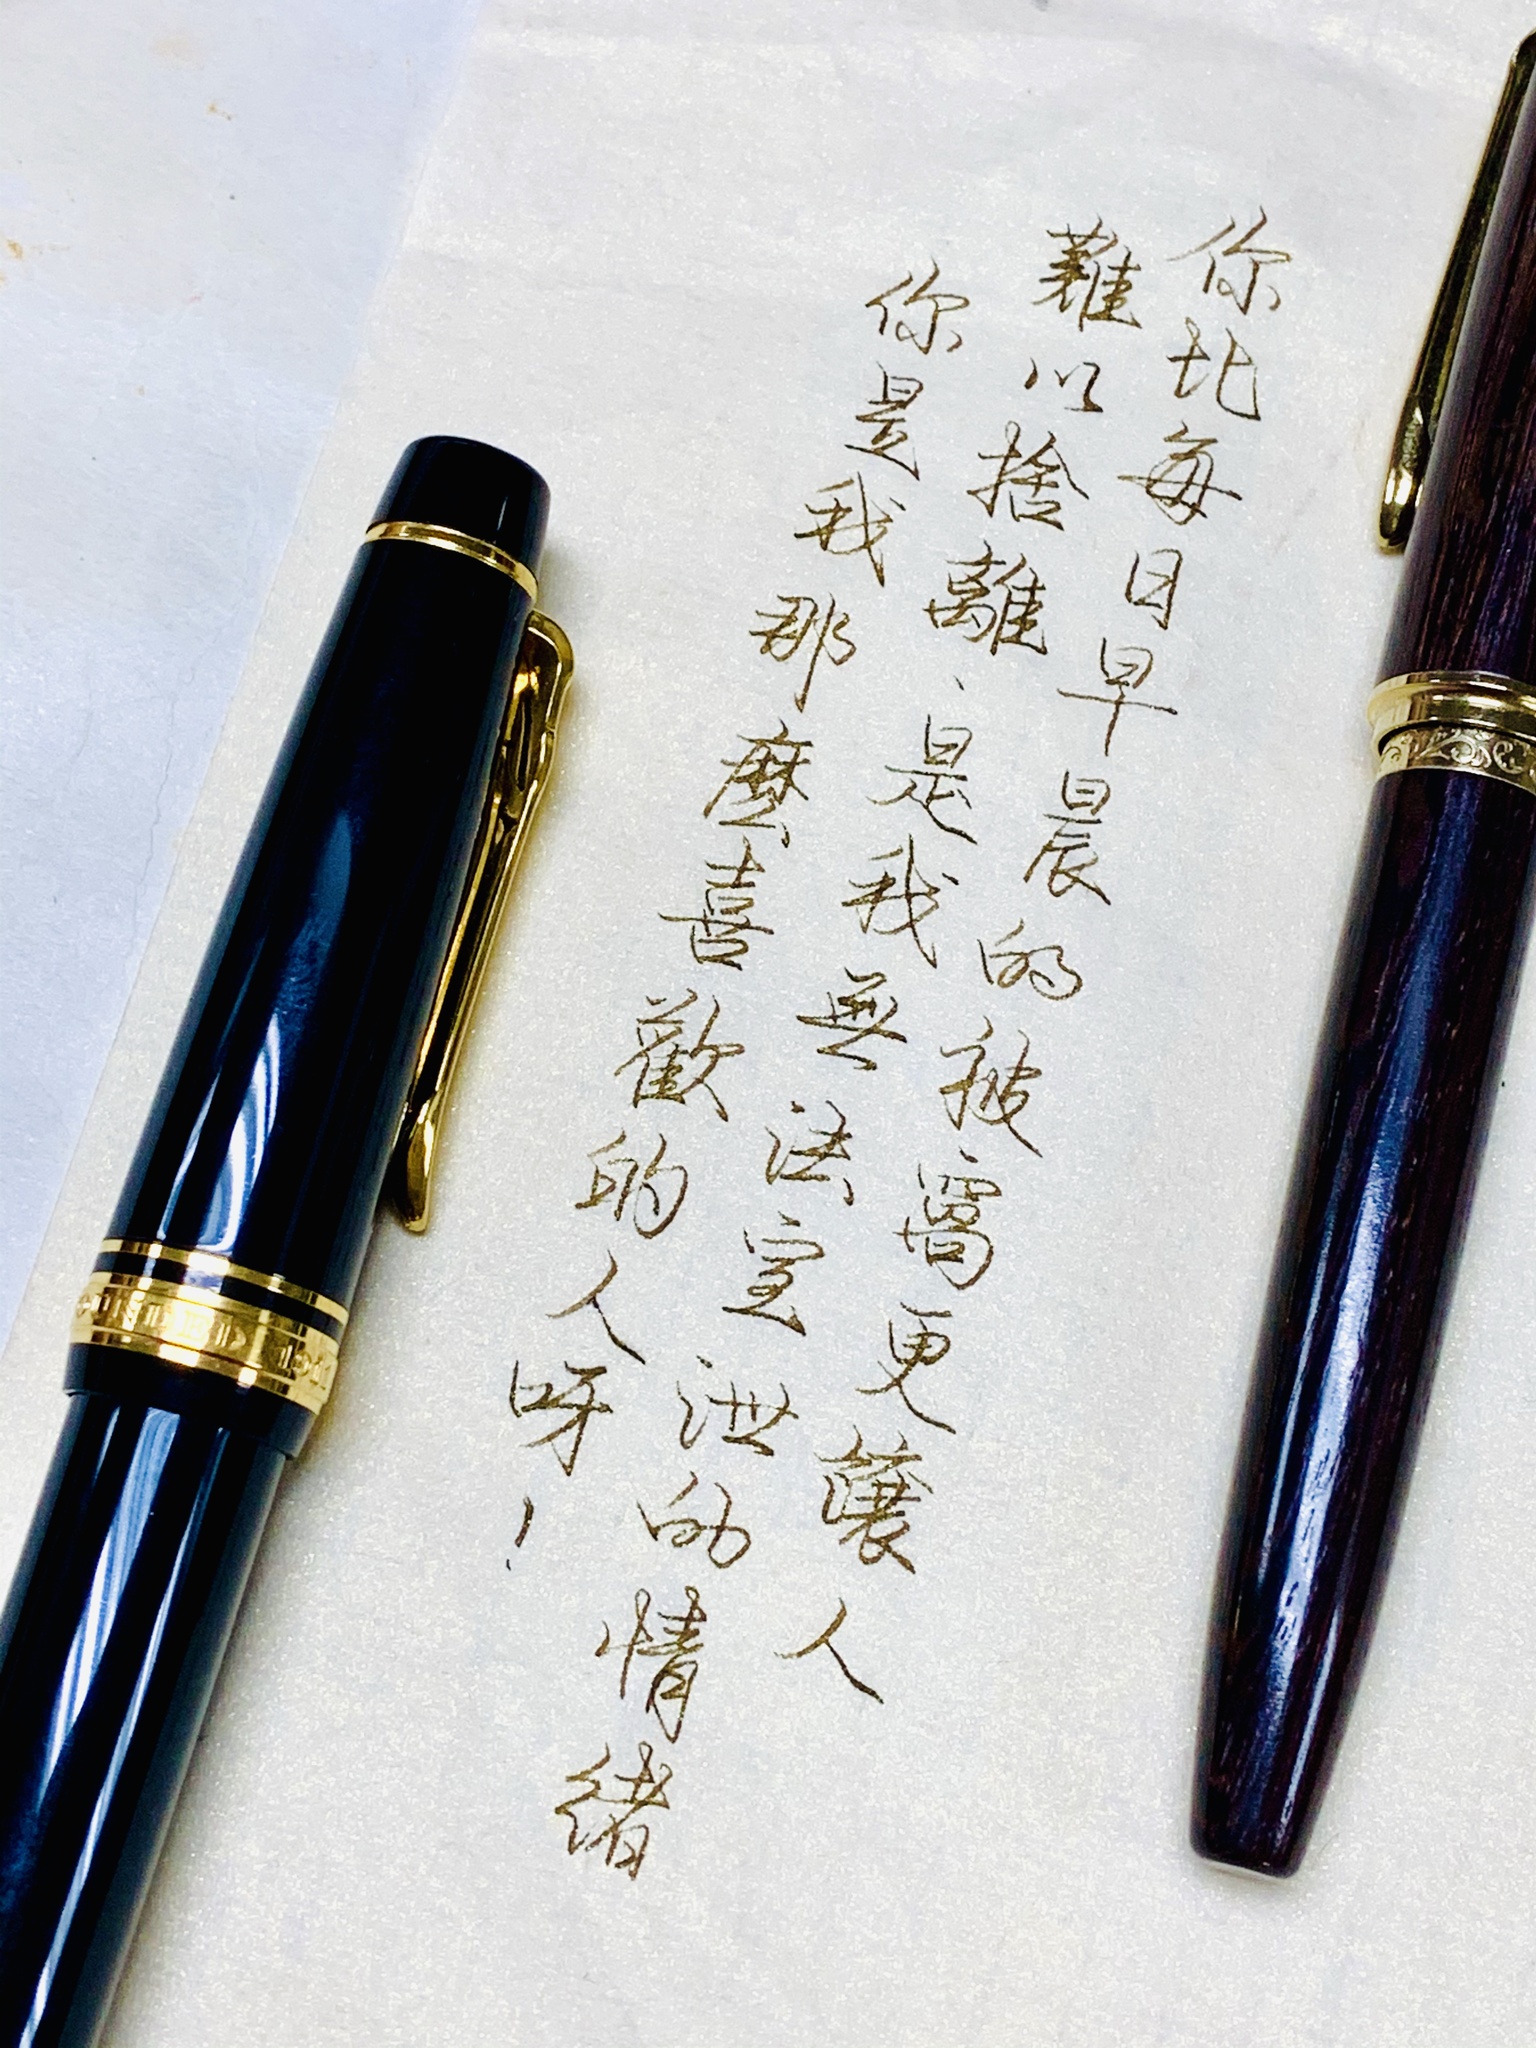 你比每日早晨的被窩更讓人
難以捨離、是我無法宣泄的情緒
你是我那麼喜歡的人呀!